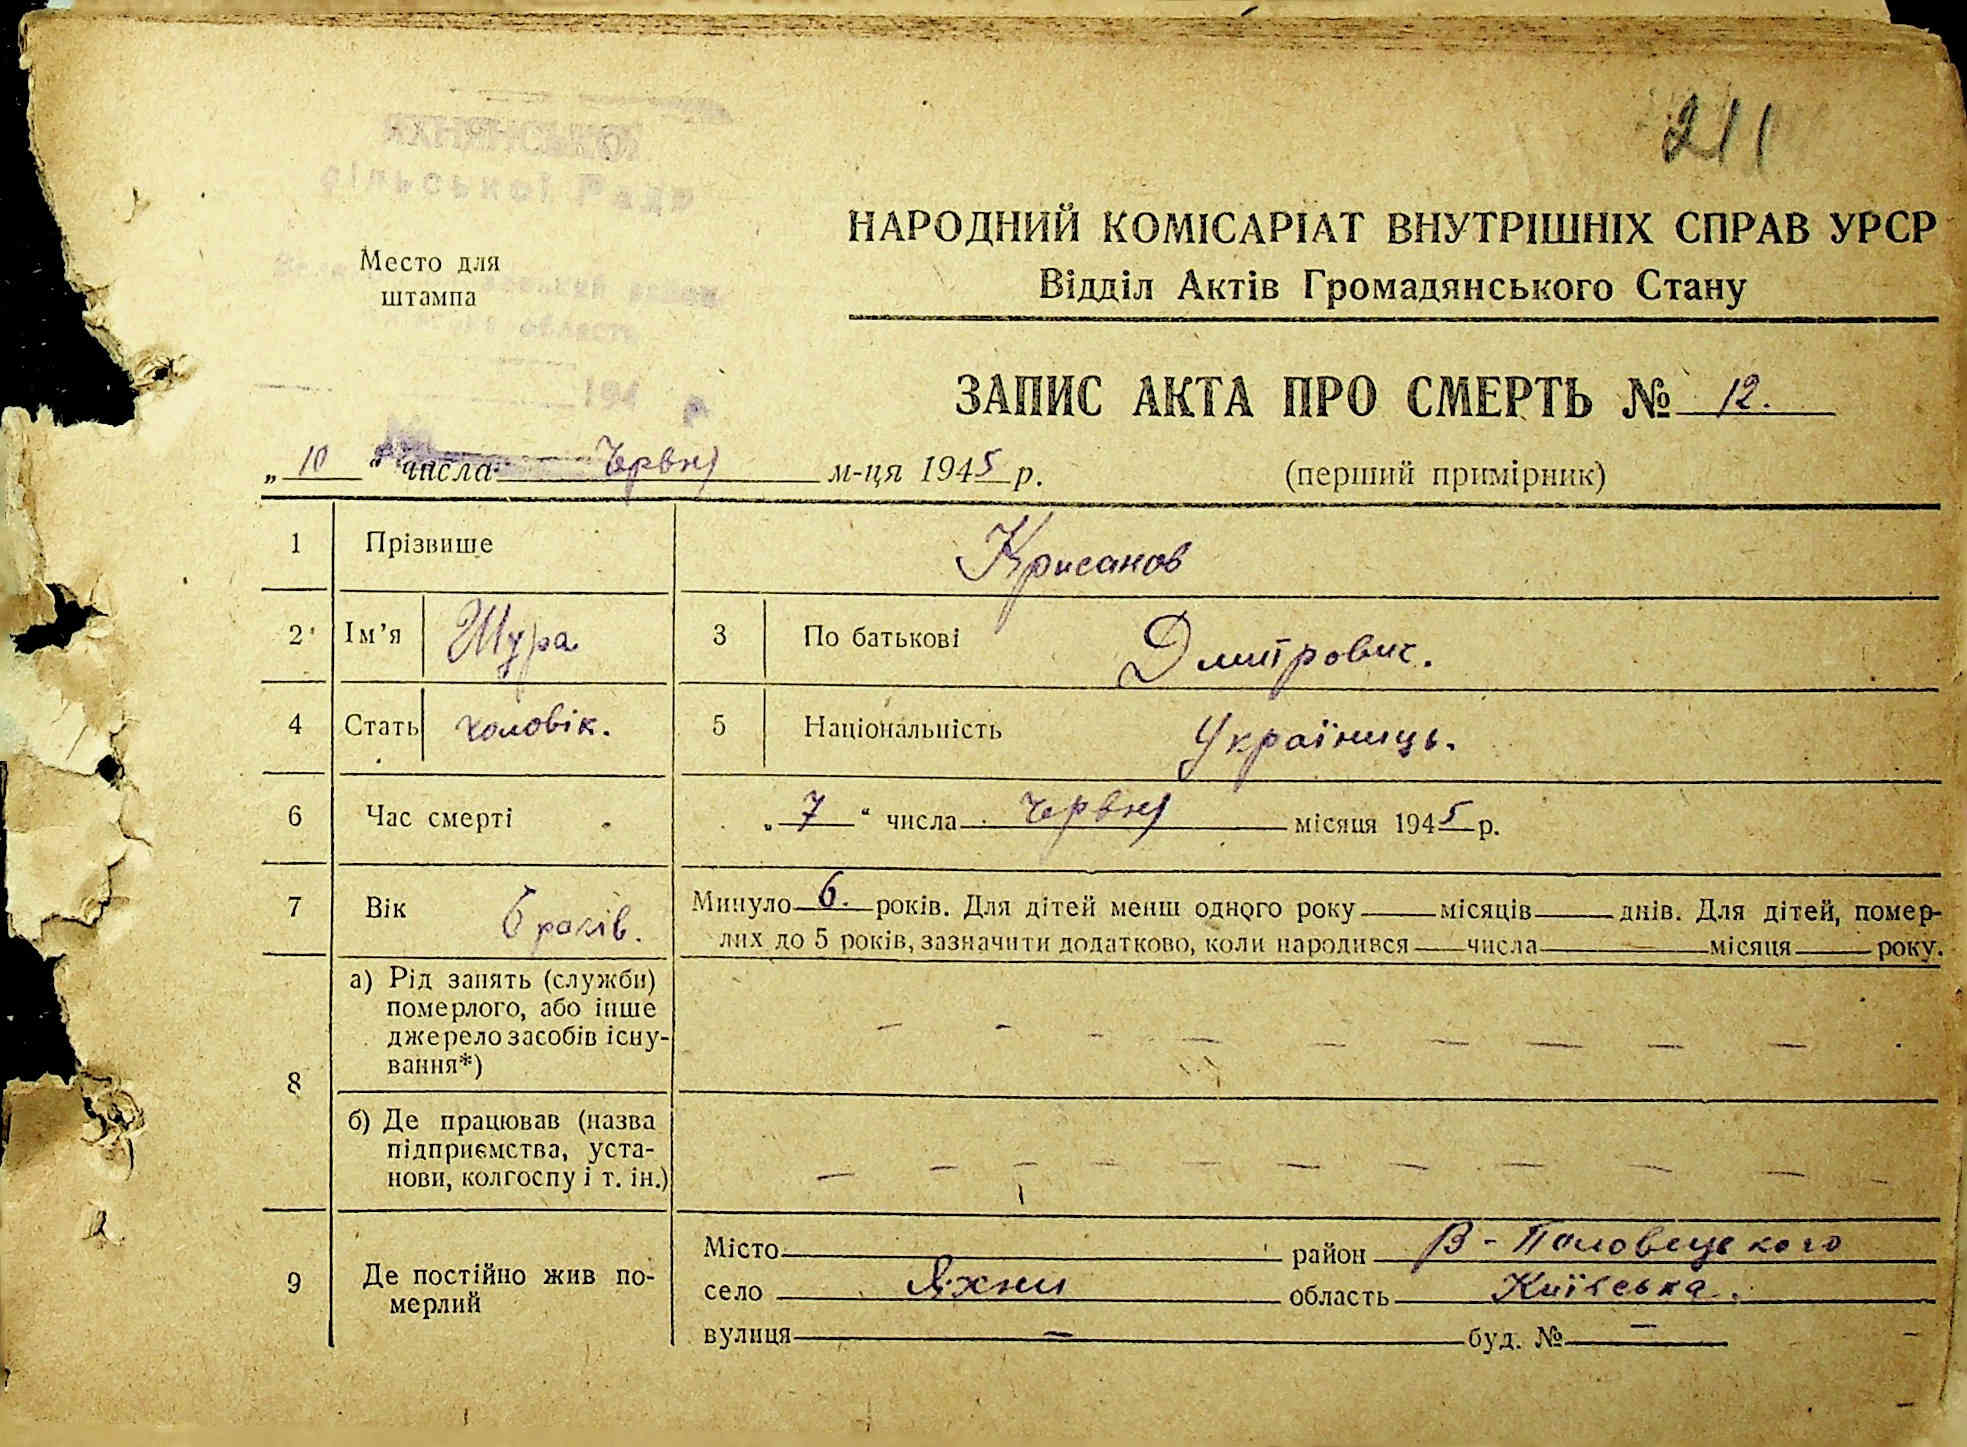 211
ЯХНЯНСЬКОЇ
сільської Ради
НАРОДНИЙ КОМІСАРІАТ ВНУТРІШНІХ СПРАВ УРСР
Відділ Актів Громадянського Стану
Место для
штампа
район
область
194 р
ЗАПИС АКТА ПРО СМЕРТЬ № 12.
„ 10 “ числа Червня м-ця 1945 р. (перший примірник)
1 Прізвище Крисанов
2 Ім’я Шура 3 По батькові Дмитрович.
4 Стать чоловік. 5 Національність Україниць.
6 Час смерті „ 7 “ числа Червня місяця 1945 р.
7 Вік 6 років. Минуло 6. років. Для дітей менш одного року місяців днів. Для дітей, помер-
лих до 5 років, зазначити додатково, коли народився числа місяця року.
8 а) Рід занять (служби)
померлого, або інше
джерело засобів існу-
вання*)
б) Де працював (назва
підприємства, уста-
нови, колгоспу і т. ін.)
9 Де постійно жив по-
мерлий
Місто район В-Половецького
село Яхни область Київська.
вулиця — буд. № —